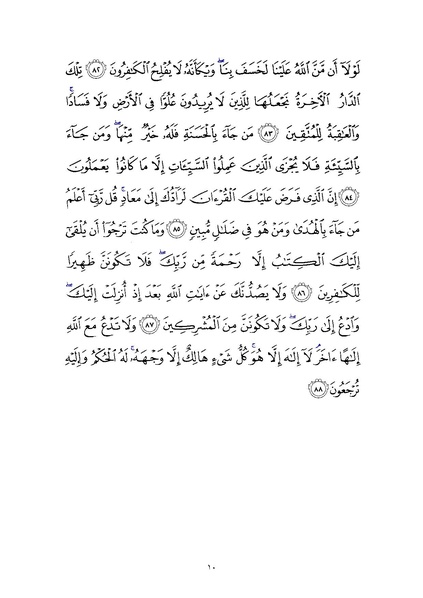 لَوْلَآ أَن مَّنَّ ٱللَّهُ عَلَيْنَا لَخَسَفَ بِنَاۖ وَيْكَأَنَّهُۥ لَا يُفْلِحُ ٱلْكَٰفِرُونَ ٨٢ تِلْكَ
ٱلدَّارُ ٱلْأٓخِرَةُ نَجْعَلُهَا لِلَّذِينَ لَا يُرِيدُونَ عُلُوًّا فِى ٱلْأَرْضِ وَلَا فَسَادًاۚ
وَٱلْعَٰقِبَةُ لِلْمُتَّقِينَ ٨٣ مَن جَآءَ بِٱلْحَسَنَةِ فَلَهُۥ خَيْرٌ مِّنْهَاۖ وَمَن جَآءَ
بِٱلسَّيِّئَةِ فَلَا يُجْزَى ٱلَّذِينَ عَمِلُوا۟ ٱلسَّيِّـَٔاتِ إِلَّا مَا كَانُوا۟ يَعْمَلُونَ
٨٤ إِنَّ ٱلَّذِى فَرَضَ عَلَيْكَ ٱلْقُرْءَانَ لَرَآدُّكَ إِلَىٰ مَعَادٍۚ قُل رَّبِّىٓ أَعْلَمُ
مَن جَآءَ بِٱلْهُدَىٰ وَمَنْ هُوَ فِى ضَلَٰلٍ مُّبِينٍ ٨٥ وَمَا كُنتَ تَرْجُوٓا۟ أَن يُلْقَىٰٓ
إِلَيْكَ ٱلْكِتَٰبُ إِلَّا رَحْمَةً مِّن رَّبِّكَۖ فَلَا تَكُونَنَّ ظَهِيرًا
لِّلْكَٰفِرِينَ ٨٦ وَلَا يَصُدُّنَّكَ عَنْ ءَايَٰتِ ٱللَّهِ بَعْدَ إِذْ أُنزِلَتْ إِلَيْكَۖ
وَٱدْعُ إِلَىٰ رَبِّكَۖ وَلَا تَكُونَنَّ مِنَ ٱلْمُشْرِكِينَ ٨٧ وَلَا تَدْعُ مَعَ ٱللَّهِ
إِلَٰهًا ءَاخَرَۘ لَآ إِلَٰهَ إِلَّا هُوَۚ كُلُّ شَىْءٍ هَالِكٌ إِلَّا وَجْهَهُۥۚ لَهُ ٱلْحُكْمُ وَإِلَيْهِ
تُرْجَعُونَ ٨٨
١٠